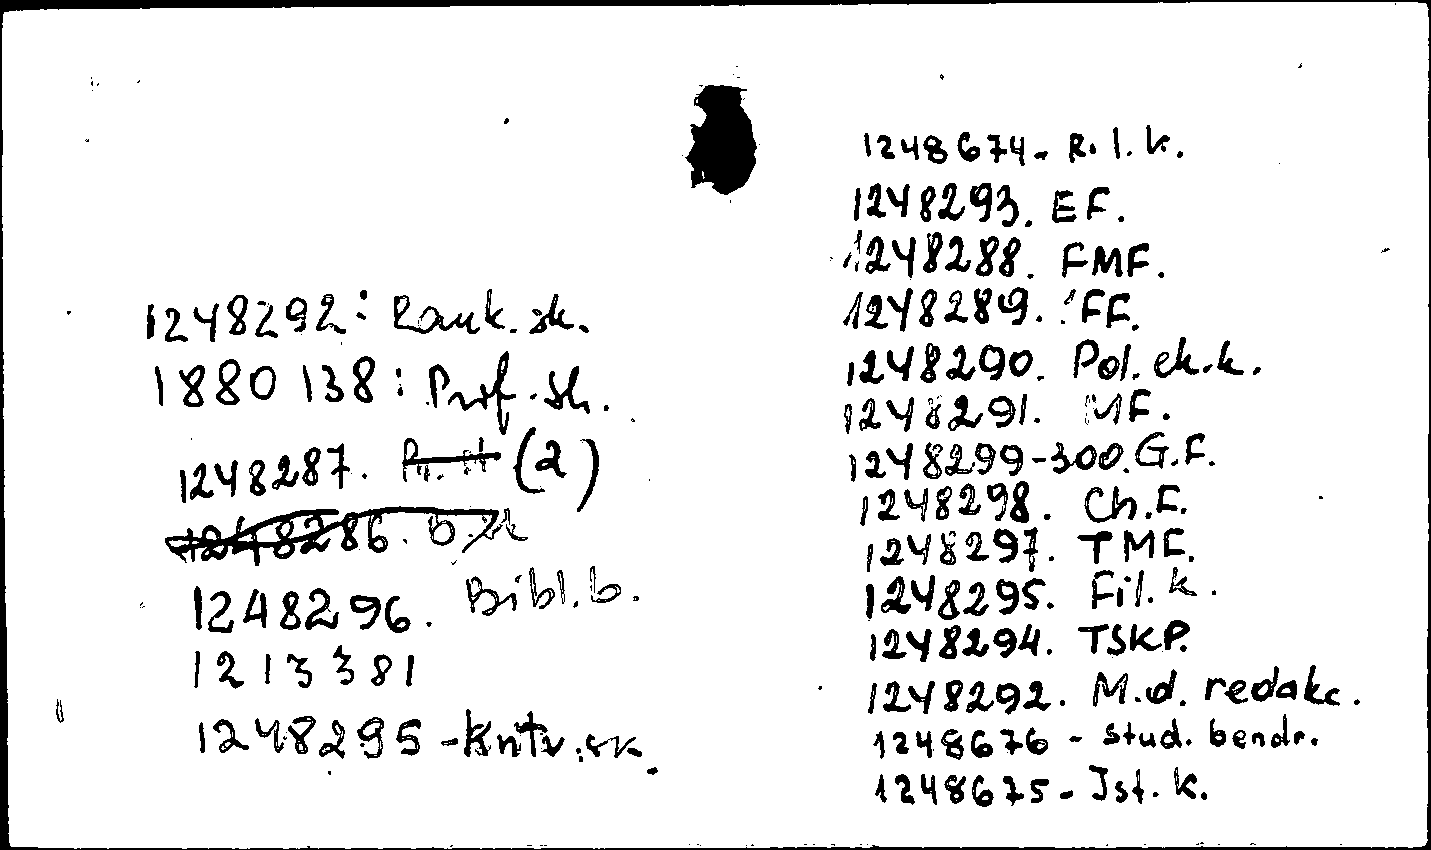 1248292: Rank. sk.
1880 138: Prof. sk.
1248287. (2)
1248286.
1248296. Bibl. b.
1213381
1248295 - Kntr. sk.
1248674 - R. l. k.
1248293. EF.
1248288. FMF.
1248289. FF.
1248290. Pol. ek. k.
1248291. MF.
1248299-300. G.F.
1248298. Ch.F.
1248297. TMF.
1248295. Fil. k.
1248294. TSKP.
1248292. M.d. redakc.
1248676 - stud. bendr.
1248675 - Ist. k.